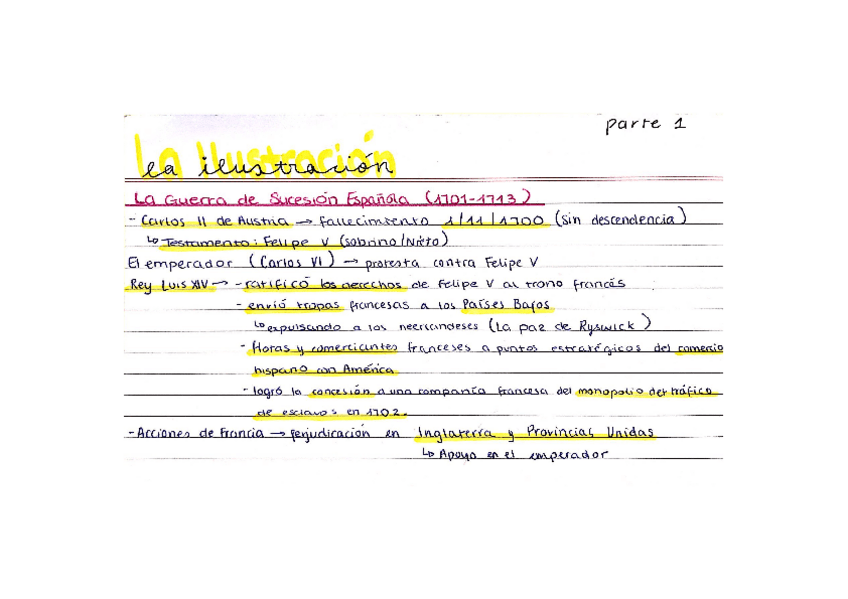 parte 1
La Ilustración
La Guerra de Sucesión Española (1701-1713)
- Carlos II de Austria → fallecimiento 1/11/1700 (sin descendencia)
↳ Testamento: Felipe V (sobrino/Nieto)
El emperador (Carlos VI) → protesta contra Felipe V
Rey Luis XIV → - ratificó los derechos de Felipe V al trono francés
- envió tropas francesas a los Países Bajos
↳ expulsando a los neerlandeses (La paz de Ryswick)
- Floras y comerciantes franceses a puntos estratégicos del comercio
hispano con América
- logró la concesión a una compañía francesa del monopolio del tráfico
de esclavos en 1702.
- Acciones de Francia → perjudicación en Inglaterra y Provincias Unidas
↳ Apoyo en el emperador